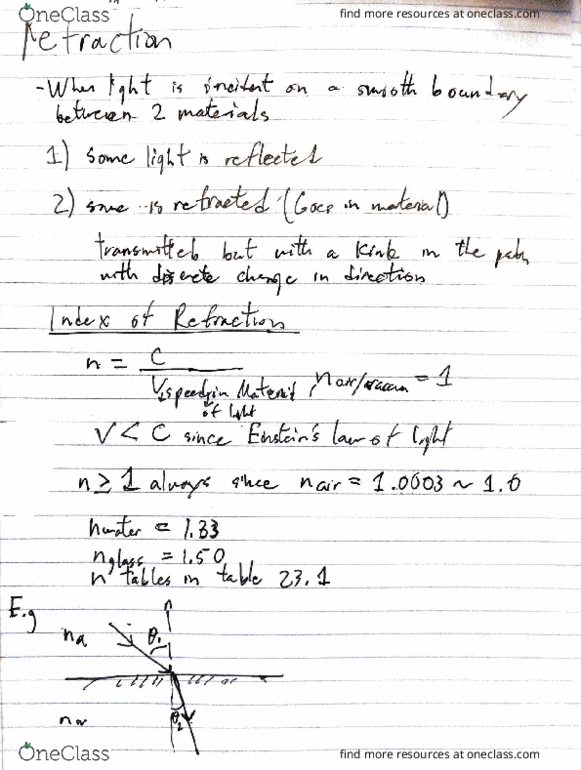 OneClass
find more resources at oneclass.com
Refraction
- When light is incident on a smooth boundary
between 2 materials
1) some light is reflected
2) some is refracted (Goes in material)
transmitted but with a kink in the path
with discrete change in direction
Index of Refraction
n = C
V, speed in Material, n air/vacuum = 1
of light
V < C since Einstein's law of light
n ≥ 1 always since n air = 1.0003 ~ 1.0
n water = 1.33
n glass = 1.50
n tables in table 23.1
E.g
n
na θ1
θ2
nw
OneClass
find more resources at oneclass.com